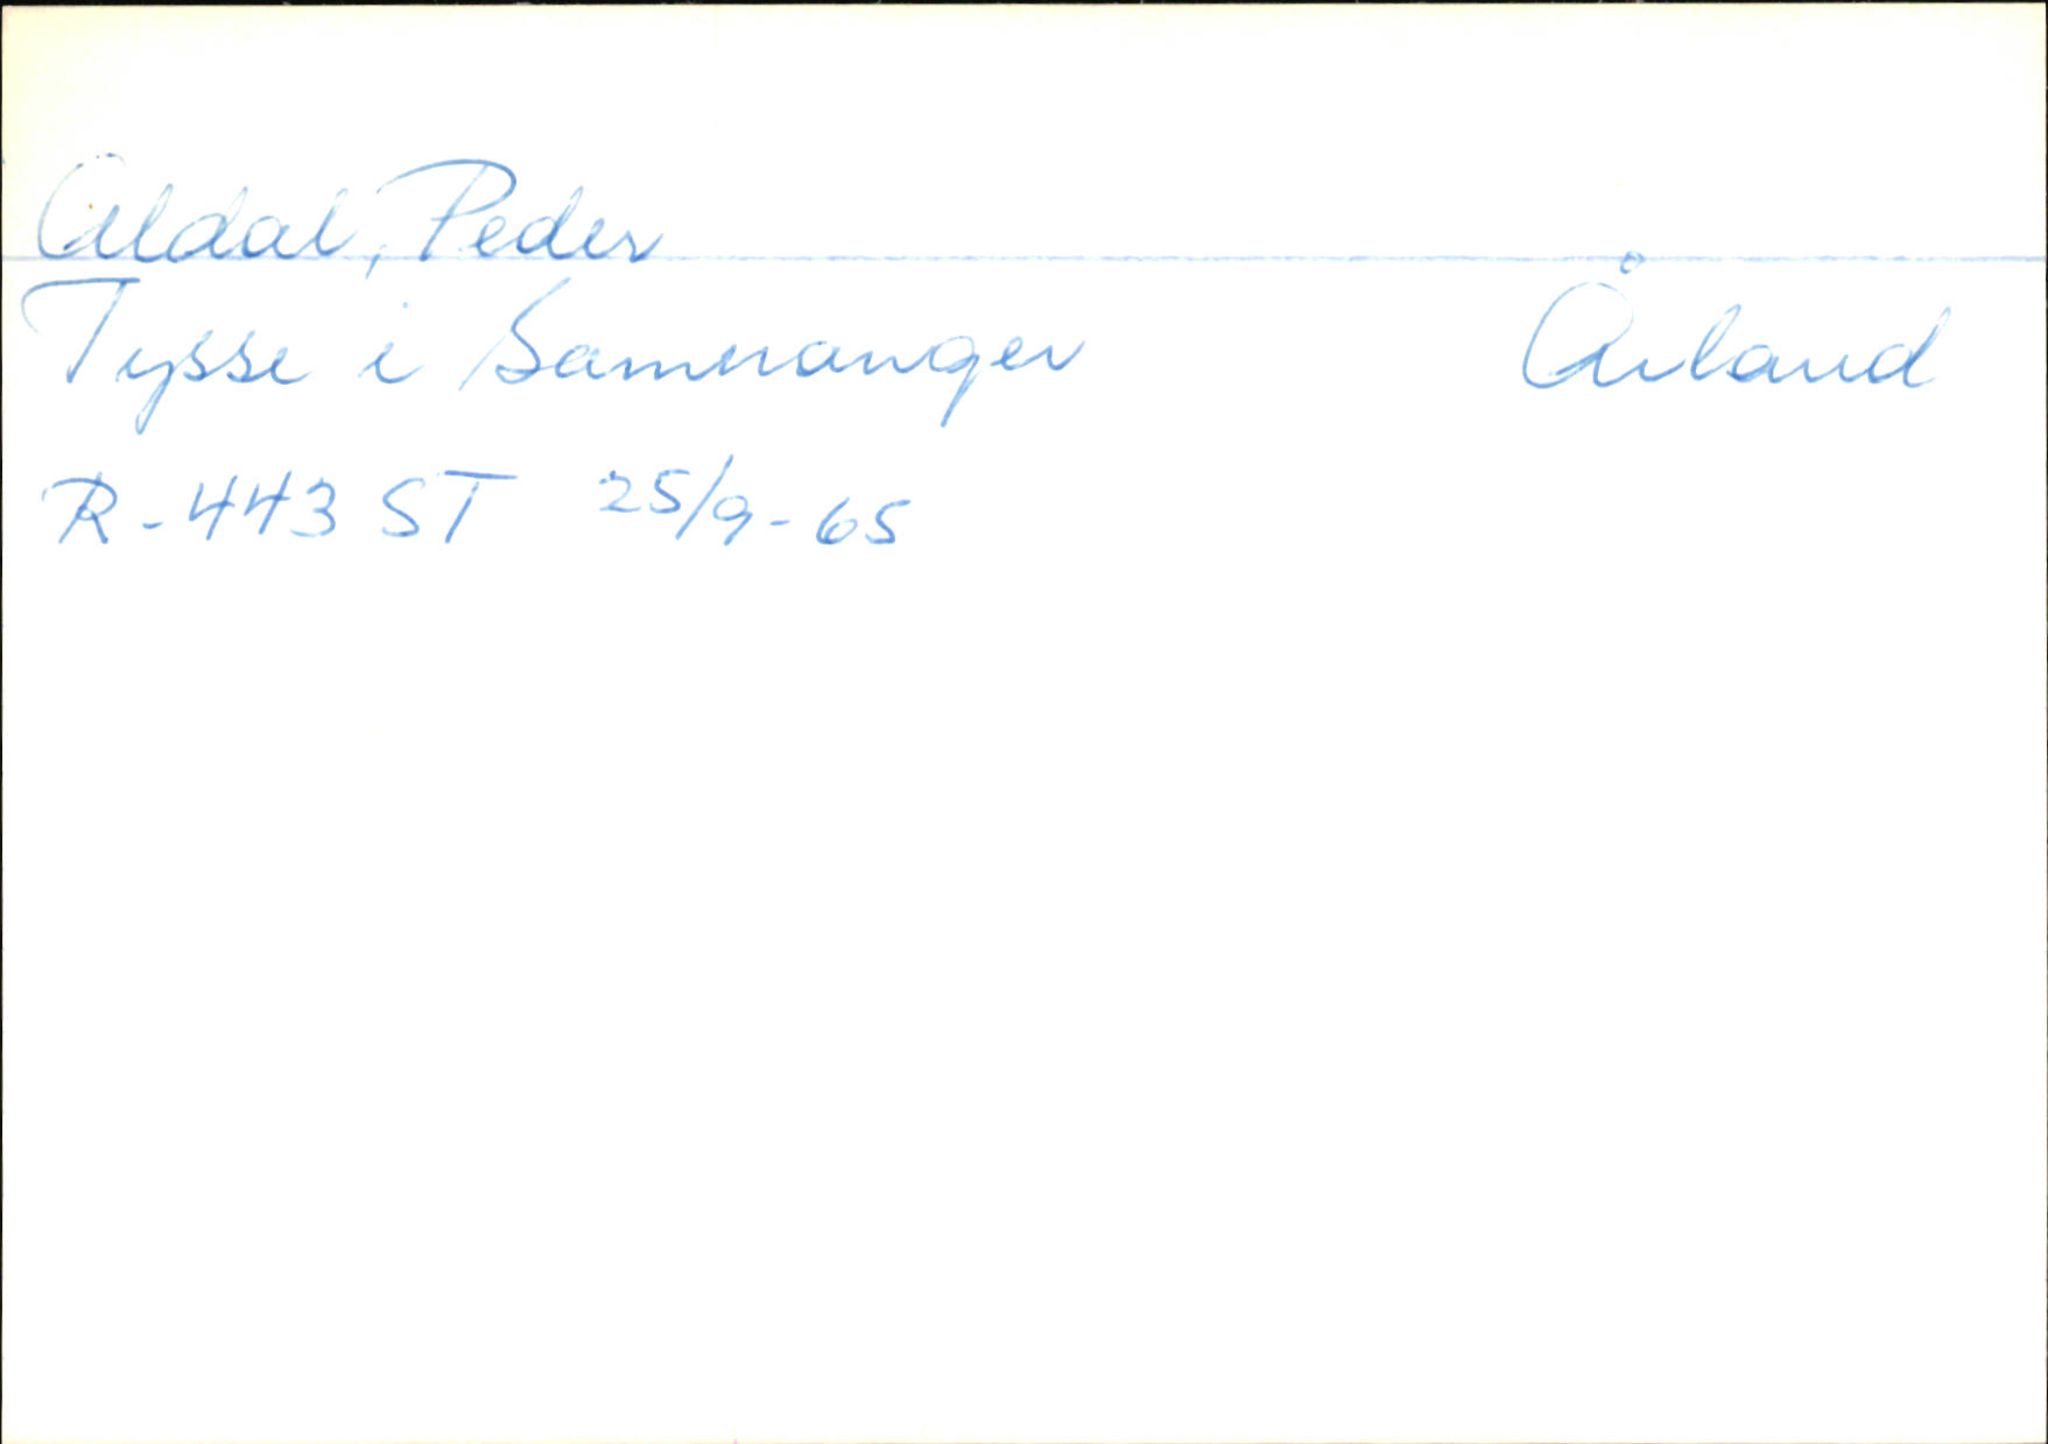 Aldal, Peder
Tysse i Samnanger Årland
R-443 ST 25/9-65